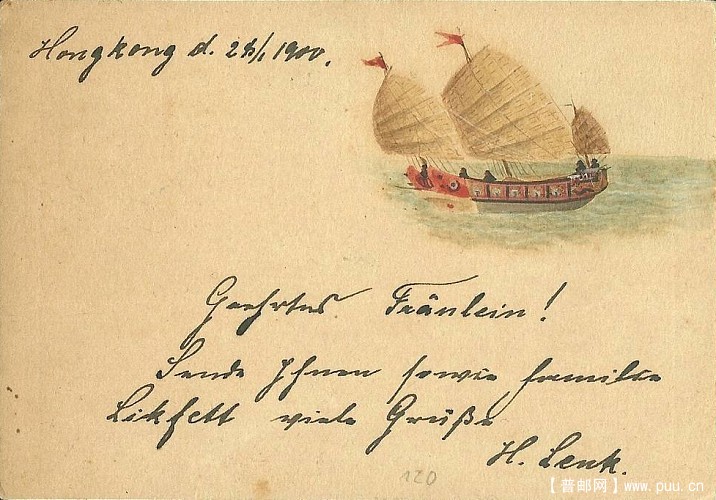 Hongkong d. 28/1 1900.
Geehrtes Fräulein!
Sende Ihnen sowie Familie
Likfett viele Grüße
H. Lenk.
120
【普邮网】www.puu.cn